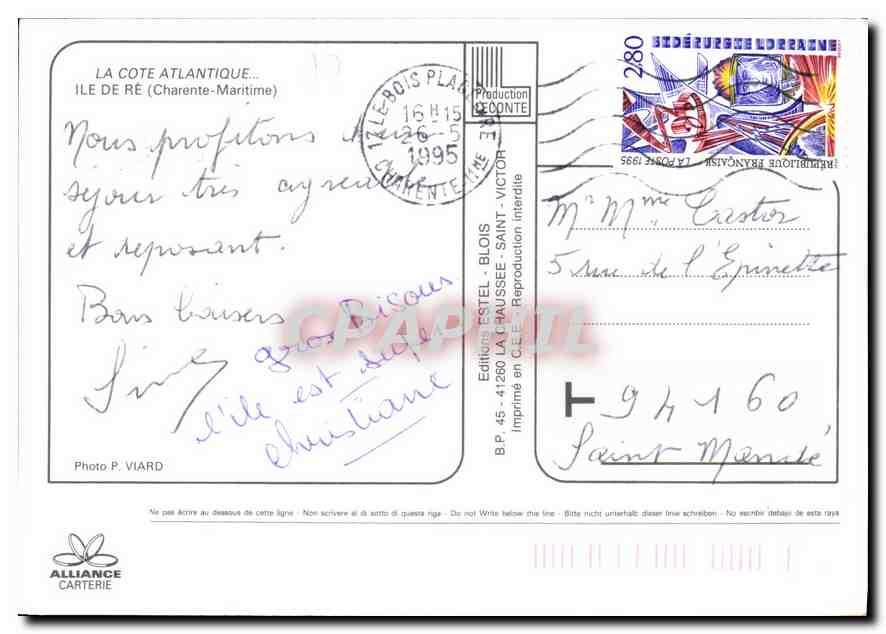 LA COTE ATLANTIQUE...
ILE DE RÉ (Charente-Maritime)
Nous profitons
séjour très agréable
et reposant.
Bons baisers
gros Bisous
l'île est super
Christiane
Photo P. VIARD
17 LE-BOIS PLAGE
16 H 15
26-5
1995
CHARENTE-MME
Production
LECONTE
Editions ESTEL - BLOIS
B.P. 45 - 41260 LA CHAUSSEE - SAINT - VICTOR
Imprimé en C.E.E. - Reproduction interdite
2,80
SIDÉRURGIE LORRAINE
RÉPUBLIQUE FRANÇAISE
LA POSTE 1995
Mr Mme Castor
5 rue de l'Epinette
T 94160
Saint Mandé
CPAPHIL
Ne pas écrire au dessous de cette ligne - Non scrivere al di sotto di questa riga - Do not Write below this line - Bitte nicht unterhalb dieser linie schreiben - No escribir debajo de esta raya
ALLIANCE
CARTERIE